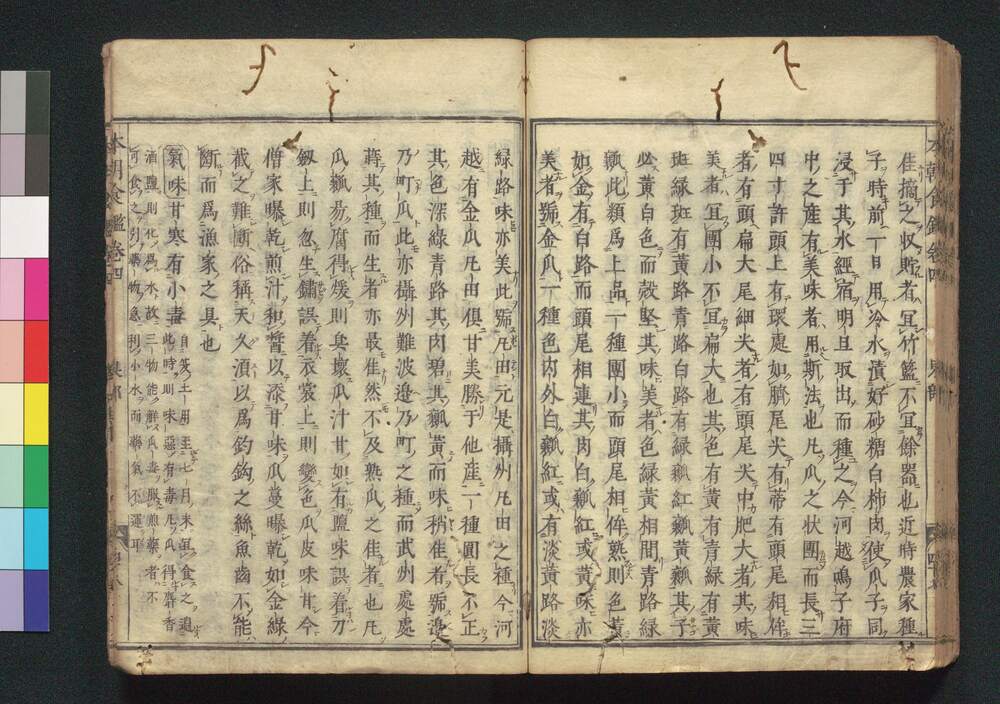 佳摘之収貯者宜竹籃不宜餘器也近時農家種
子時前一日用冷水漬好砂糖白柿肉使瓜子同
浸于其水經宿明旦取出而種之今河越鳴子府
中之産有美味者用斯法也凡瓜之状團而長三
四寸許頭上有環處如臍尾尖有蒂有頭尾相侔
者有頭扁大尾細尖者有頭尾尖中肥大者其味
美者宜團小不宜扁大也其色有黄有青緑有黄
斑緑斑有黄路青路白路有緑瓤紅瓤黄瓤其子
必黄白色而殻堅其味美者色緑黄相間青路緑
瓤此類爲上品一種團小而頭尾相侔熟則色黄
如金有白路而頭尾相連其肉白瓤紅或黄味亦
美者號金瓜一種色内外白瓤紅或有淡黄路淡
緑路味亦美此號凡田元是攝州凡田之種今河
越有金瓜凡田倶甘美勝于他産一種圓長不正
其色深緑青路其肉碧其瓤黄而味稍佳者號邉
乃町瓜此亦攝州難波邉乃町之種而武州處處
蒔其種而生者亦最佳然不及熟瓜之佳者也凡
瓜瓤易腐得煖則臭壞瓜汁甘如有鹽味誤着刀
釼上則忽生鏽誤着衣裳上則變色瓜皮味甘今
僧家曝乾煎汁和醤以添甘味瓜蔓曝乾如金緑
截之難斷俗稱天久須以爲釣鈎之絲魚齒不能
斷而爲漁家之具也
氣味甘寒有小毒
自筊土用至七月末宜食之過
此時則味惡有毒凡瓜得麝香
酒鹽則化爲水故三物能解瓜毒服藥者不
可食之引藥物急利小水而藥氣不運耳
本朝食鑑卷四